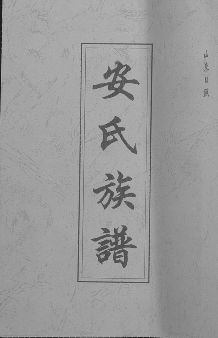 山东日照
安氏族譜